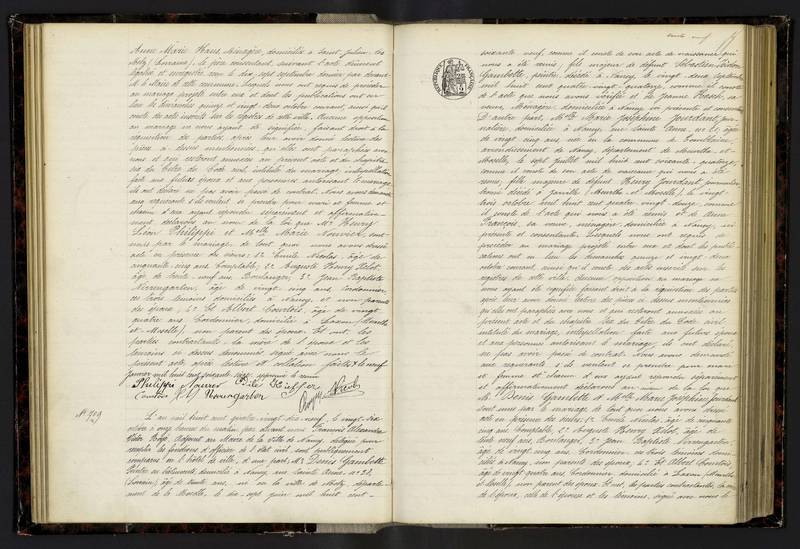 Anne Marie Haus, Ménagère, domiciliée à Saint Julien les
Metz (Lorraine), le père consentant, suivant l'acte dûment
légalisé et enregistré, le dix sept septembre dernier par devant
M. le Maire de cette commune. Lesquels nous ont requis de procéder
au mariage projeté entre eux et dont les publications ont eu
lieu les dimanches quinze et vingt deux octobre courant, ainsi qu'il
conste des actes inscrits sur les registres de cette ville. Aucune opposition
au mariage ne nous ayant été signifiée, faisant droit à la
réquisition des parties, après leur avoir donné lecture des
pièces ci dessus mentionnées, qu'elles ont paraphées avec
nous et qui resteront annexées au présent acte et du chapitre
six du titre du Code civil intitulé du mariage, interpellation
faite aux futurs époux et aux personnes autorisant le mariage,
ils ont déclaré ne pas avoir passé de contrat. Nous avons demandé
aux requérants s'ils veulent se prendre pour mari et femme et
chacun d'eux ayant répondu séparément et affirmative-
ment déclarons au nom de la loi que Mr. Henry
Léon Philippi et Melle Marie Nourier sont
unis par le mariage, de tout quoi nous avons dressé
acte en présence des sieurs: 1° Emile Nicolas, âgé de
cinquante cinq ans, Comptable; 2° Auguste Henry Helot,
âgé de trente neuf ans, Boulanger; 3° Jean Baptiste
âgé de vingt cinq ans, Cordonnier,
ces trois témoins domiciliés à Nancy et non parents
des époux; 4° Et Albert Courtois, âgé de vingt
quatre ans, Cordonnier, domicilié à Laxou (Meurthe
et Moselle), non parent des époux. Et ont, les
parties contractantes, la mère de l'époux et les
témoins ci dessus dénommés signé avec nous le
présent acte après lecture et collation faites
Philippi Nourier
Nicolas
N° 709
L'an mil huit cent quatre vingt dix-neuf, le vingt-six
octobre à onze heures du matin par devant nous François Alexandre
Adjoint au Maire de la Ville de Nancy, délégué pour
remplir les fonctions d'officier de l'état civil, sont publiquement
comparus en l'hôtel de ville, d'une part, Mr. Denis Gambette
Peintre en bâtiments, domicilié à Nancy, rue Sainte Anne, n° 25,
(Lorrain), âgé de trente ans, né en la ville de Metz, départe-
ment de la Moselle, le dix-sept juin mil huit cent
RÉPUBLIQUE FRANÇAISE
soixante neuf, comme il conste de son acte de naissance qui
nous a été remis, fils majeur de défunt Sébastien
Gambette, peintre, décédé à Nancy, le vingt deux septembre
mil huit cent quatre vingt quatorze, comme il conste
de l'acte que nous avons vérifié et de Jeanne sa
veuve, Ménagère, domiciliée à Nancy, ici présente et consentante.
D'autre part, Melle Marie Joséphine Jourdant, jour-
nalière, domiciliée à Nancy, rue Sainte Anne, n° 25, âgée
de vingt cinq ans, née en la commune de
arrondissement de Nancy, département de Meurthe-et-
Moselle, le sept juillet mil huit cent soixante quatorze,
comme il conste de son acte de naissance qui nous a été
remis, fille majeure de défunt Henry Jourdant, journalier
décédé à Jarville (Meurthe-et-Moselle), le vingt-
trois octobre mil huit cent quatre vingt douze, comme
il conste de l'acte qui nous a été remis et de Anne
François, sa veuve, ménagère, domiciliée à Nancy, ici
présente et consentante. Lesquels nous ont requis de
procéder au mariage projeté entre eux et dont les publi-
cations ont eu lieu les dimanches quinze et vingt deux
octobre courant, ainsi qu'il conste des actes inscrits sur les
registres de cette ville. Aucune opposition au mariage ne
nous ayant été signifiée, faisant droit à la réquisition des parties
après leur avoir donné lecture des pièces ci dessus mentionnées
qu'elles ont paraphées avec nous et qui resteront annexées au
présent acte et du chapitre six du titre du Code civil
intitulé du mariage, interpellation faite aux futurs époux
et aux personnes autorisant le mariage, ils ont déclaré
ne pas avoir passé de contrat. Nous avons demandé
aux requérants s'ils veulent se prendre pour mari
et femme et chacun d'eux ayant répondu séparément
et affirmativement déclarons au nom de la loi que
Mr. Denis Gambette et Melle Marie Joséphine Jourdant
sont unis par le mariage, de tout quoi nous avons dressé
acte en présence des sieurs: 1° Emile Nicolas, âgé de cinquante
cinq ans, Comptable; 2° Auguste Henry Helot, âgé de
trente neuf ans, Boulanger; 3° Jean Baptiste
âgé de vingt cinq ans, Cordonnier, ces trois témoins domi-
ciliés à Nancy, non parents des époux; 4° Et Albert Courtois,
âgé de vingt quatre ans, Cordonnier, domicilié à Laxou (Meurthe
et Moselle), non parent des époux. Et ont, les parties contractantes, la mère
de l'époux, celle de l'épouse et les témoins, signé avec nous le